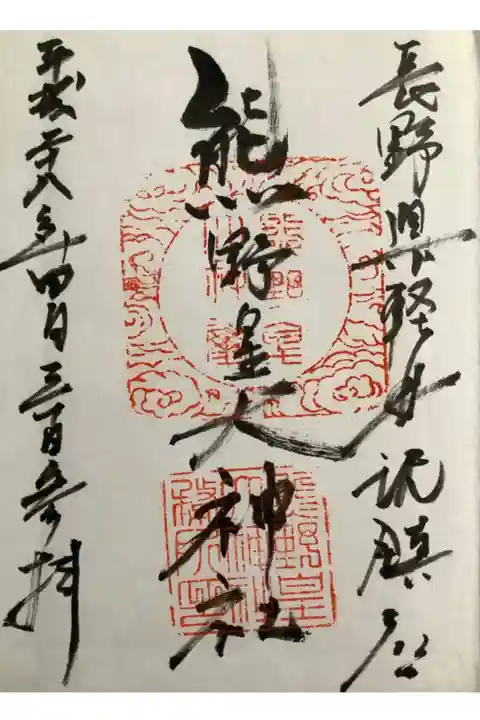 長野県軽井沢鎮座
熊野皇大神社
平成二十八年四月三日参拝